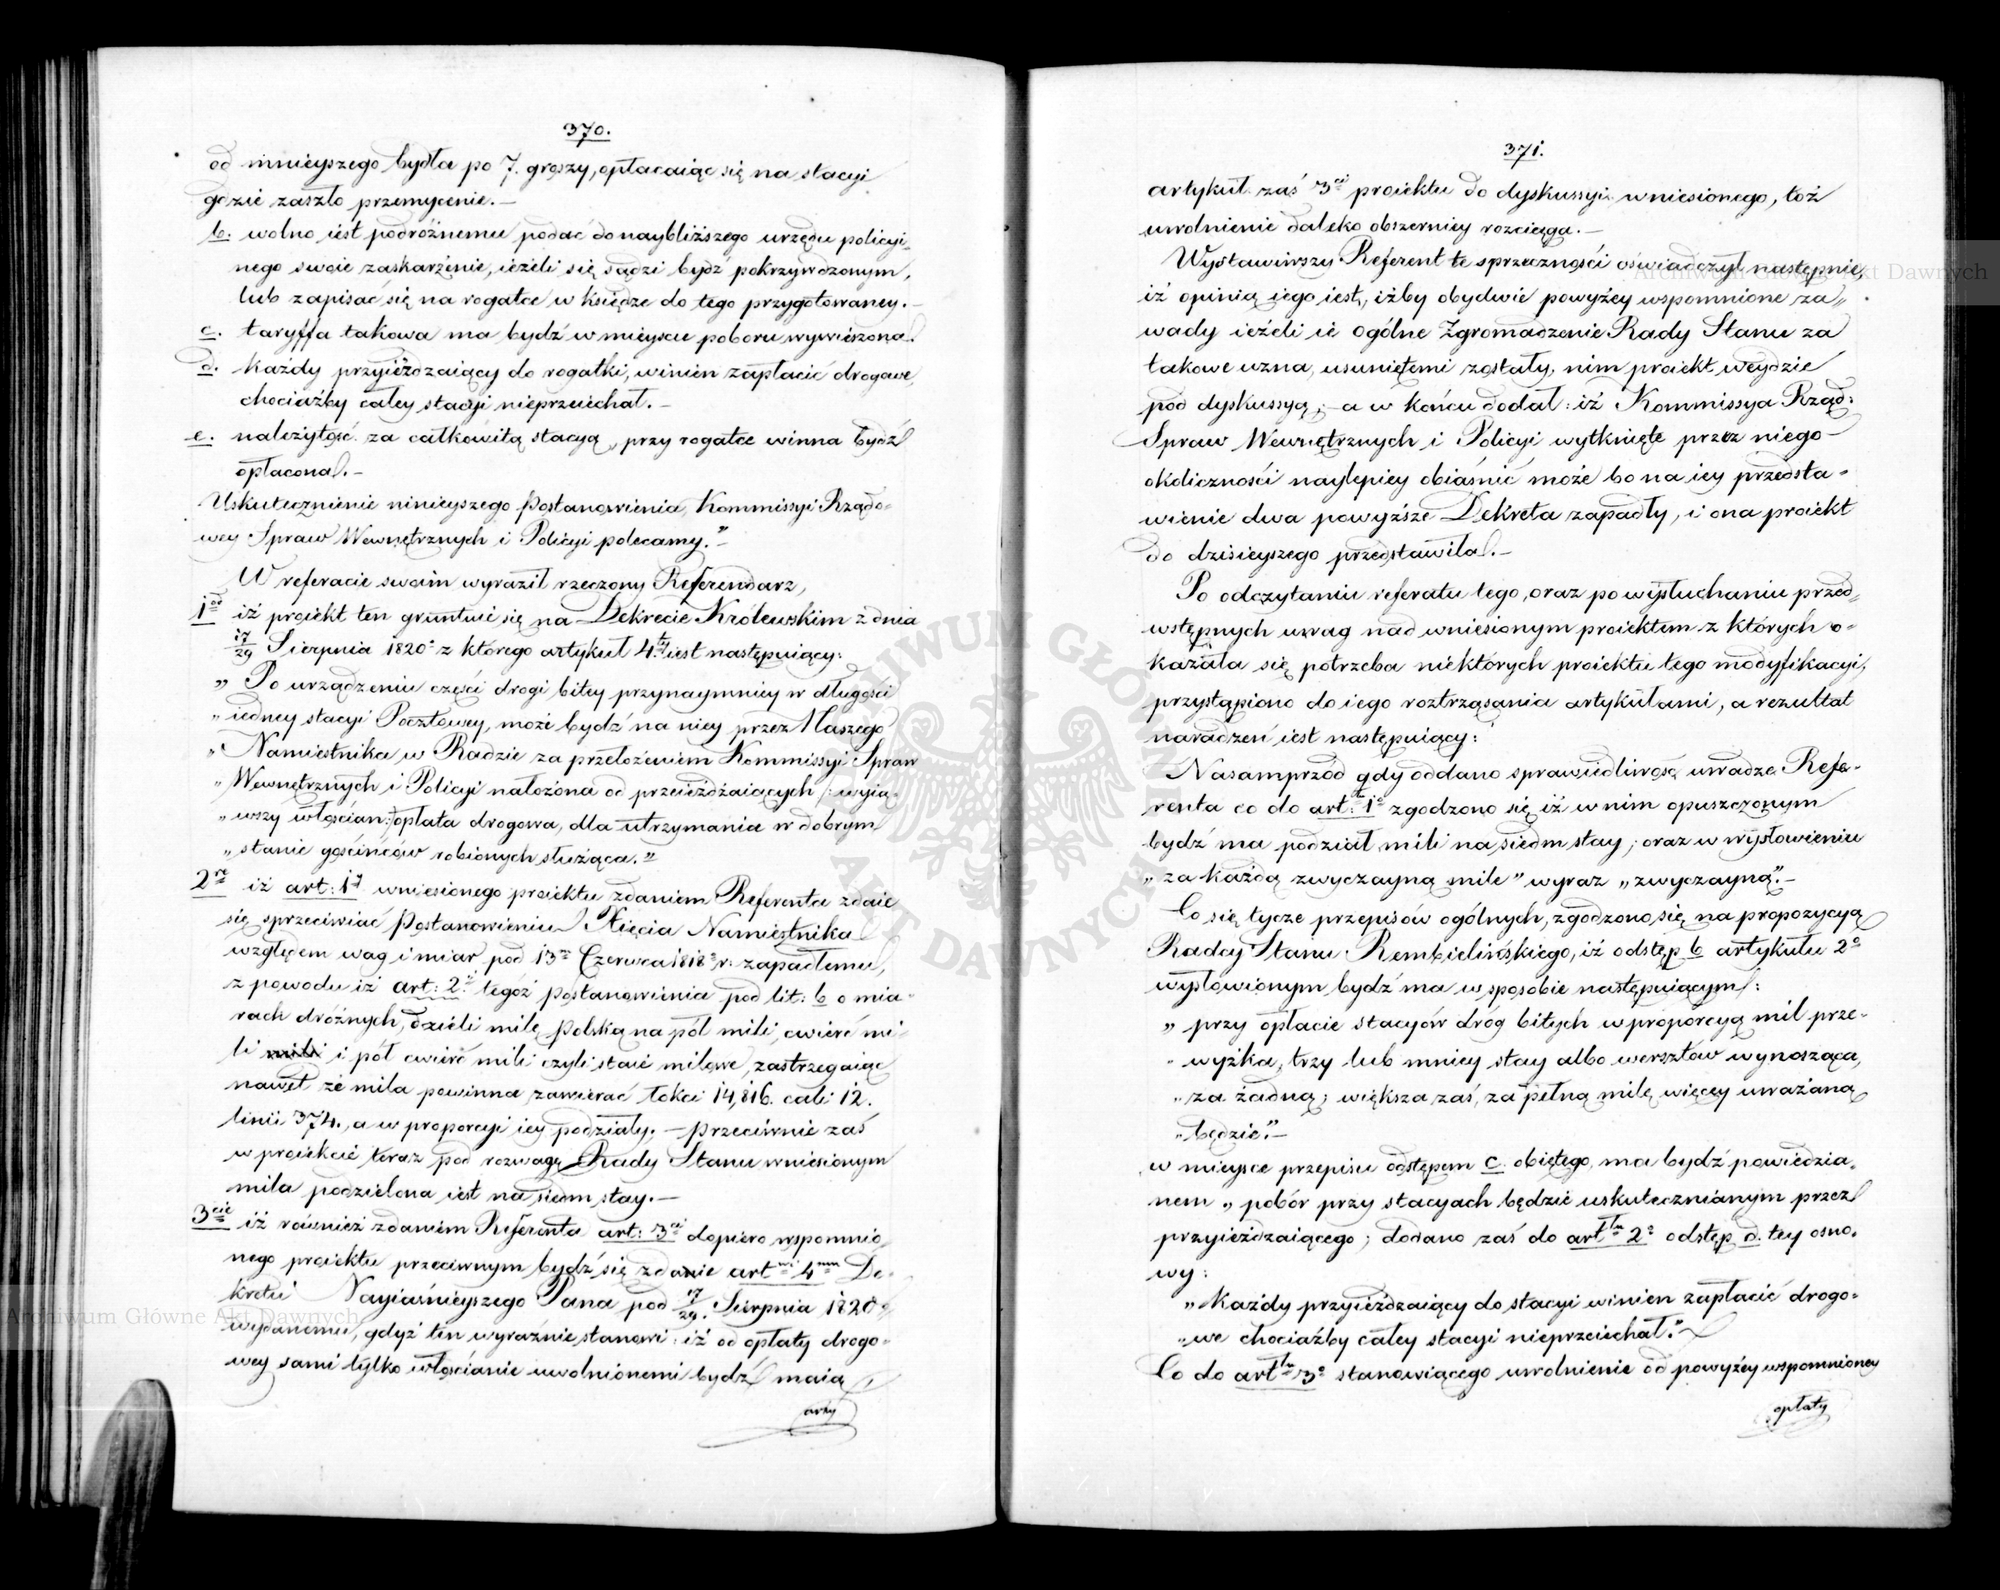 370.
od mnieyszego bydła po 7. groszy, opłacaiąc się na stacyi
gdzie zaszło przemycenie. —
b. wolno iest podróżnemu podać do naybliższego urzędu policyi-
nego swoie zaskarżenie, ieżeli się sądzi bydź pokrzywdzonym,
lub zapisać się na rogatce w księdze do tego przygotowaney. —
c. taryffa takowa ma bydź w mieyscu poboru wywieszona.
d. każdy przyieżdzaiący do rogatki, winien zapłacić drogowe,
chociażby całey stacyi nieprzeiechał. —
e. należytość za całkowitą stacyą, przy rogatce winna bydź
opłacona. —
Uskutecznienie ninieyszego Postanowienia, Kommissyi Rządo-
wey Spraw Wewnętrznych i Policyi polecamy." —
W referacie swoim wyraził rzeczony Referendarz,
1od iż proiekt ten gruntuie się na Dekrecie Królewskim z dnia
17/29 Sierpnia 1820 z którego artykuł 4ty iest następuiący:
„ Po urządzeniu części drogi bitey przynaymniey w długości
„ iedney stacyi Pocztowey, może bydź na niey przez Naszego
„ Namiestnika w Radzie za przełożeniem Kommissyi Spraw
„ Wewnętrznych i Policyi nałożona od przeieżdżaiących /: wyią-
„ wszy włościan :/ opłata drogowa, dla utrzymania w dobrym
„ stanie gościńców robionych służąca."
2re iż art: 1y wniesionego proiektu zdaniem Referenta zdaie
się sprzeciwiać Postanowieniu Xięcia Namiestnika
względem wag i miar pod 13m Czerwca 1818 r: zapadłemu,
z powodu iż art: 2i tegoż postanowienia pod lit: b o mia-
rach dróżnych, dzieli milę Polską na pół mili, ćwierć mi-
li mili i pół ćwierć mili czyli staie milowe, zastrzegaiąc
nawet że mila powinna zawierać łokci 14,816. cali 12.
linii 3 7/4., a w proporcyi iey podziały. — przeciwnie zaś
w proiekcie teraz pod rozwagę Rady Stanu wniesionym
mila podzielona iest na siedm stay. —
3cie iż również zdaniem Referenta art: 3ci dopiero wspomnio-
nego proiektu przeciwnym bydź się zdanie artwi 4mu De-
kretu Nayiaśnieyszego Pana pod 17/29. Sierpnia 1820
wydanemu, gdyż ten wyraźnie stanowi, iż od opłaty drogo-
wey sami tylko włościanie uwolnionemi bydź maią,
arty
371.
artykuł zaś 3ci proiektu do dyskussyi wniesionego, toż
uwolnienie daleko obszerniey rozciąga. —
Wystawiwszy Referent te sprzeczności oświadczył następnie,
iż opinią iego iest, iżby obydwie powyżey wspomnione za-
wady ieżeli ie ogólne Zgromadzenie Rady Stanu za
takowe uzna, usuniętemi zostały, nim proiekt weydzie
pod dyskussyą; — a w końcu dodał: iż Kommissya Rząd:
Spraw Wewnętrznych i Policyi wytknięte przez niego
okoliczności naylepiey obiaśnić może bo na iey przedsta-
wienie dwa powyższe Dekreta zapadły, i ona proiekt
do dzisieyszego przedstawiła. —
Po odczytaniu referatu tego, oraz po wysłuchaniu przed-
wstępnych uwag nad wniesionym proiektem z których o-
kazała się potrzeba niektórych proiektu tego modyfikacyi,
przystąpiono do iego roztrząsania artykułami, a rezultat
naradzeń iest następuiący:
Nasamprzód gdy oddano sprawiedliwość uwadze Refe-
renta co do art: 1o zgodzono się iż w nim opuszczonym
bydź ma podział mili na siedm stay; oraz w wysłowieniu
„ za każdą zwyczayną mile" wyraz „ zwyczayną". —
Co się tycze przepisów ogólnych, zgodzono się na propozycyą
Radcy Stanu Rembielińskiego, iż odstęp b artykułu 2o
wysłowionym bydź ma w sposobie następuiącym:
„ przy opłacie stacyów dróg bitych w proporcyą mil prze-
„ wyżka, trzy lub mniey stay albo wersztów wynosząca,
„ za żadną; większa zaś, za pełną milę więcey uważaną
„ będzie." —
w mieysce przepisu odstępem c. obiętego, ma bydź powiedzia-
nem „ pobór przy stacyach będzie uskutecznianym przez
przyieżdzaiącego; dodano zaś do arttu 2o odstęp d. tey osno-
wy:
„ każdy przyieżdzaiący do stacyi winien zapłacić drogo-
„ we chociażby całey stacyi nieprzeiechał."
Co do arttu 3o stanowiącego uwolnienie od powyżey wspomnioney
opłaty
ARCHIWUM GŁÓWNE AKT DAWNYCH
Archiwum Główne Akt Dawnych
Archiwum Główne Akt Dawnych